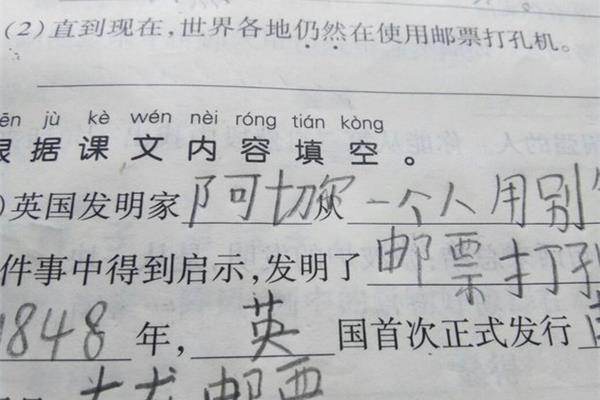 (2)直到现在,世界各地仍然在使用邮票打孔机。
ēn jù kè wén nèi róng tián kòng
根据课文内容填空。
)英国发明家阿切尔从一个人用别
件事中得到启示,发明了邮票打孔
1848年,英国首次正式发行
邮票